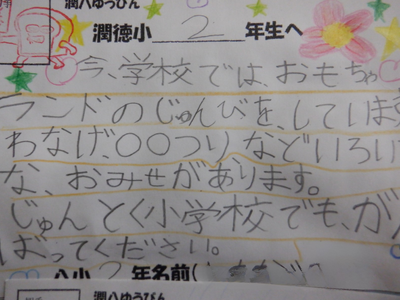 潤八ゆうびん
潤徳小 2 年生へ
今、学校では、おもちゃ
ランドのじゅんびを、しています
わなげ、〇〇つりなどいろい
な、おみせがあります。
じゅんとく小学校でも、がん
ばってください。
八小 2 年名前(
潤八ゆうびん